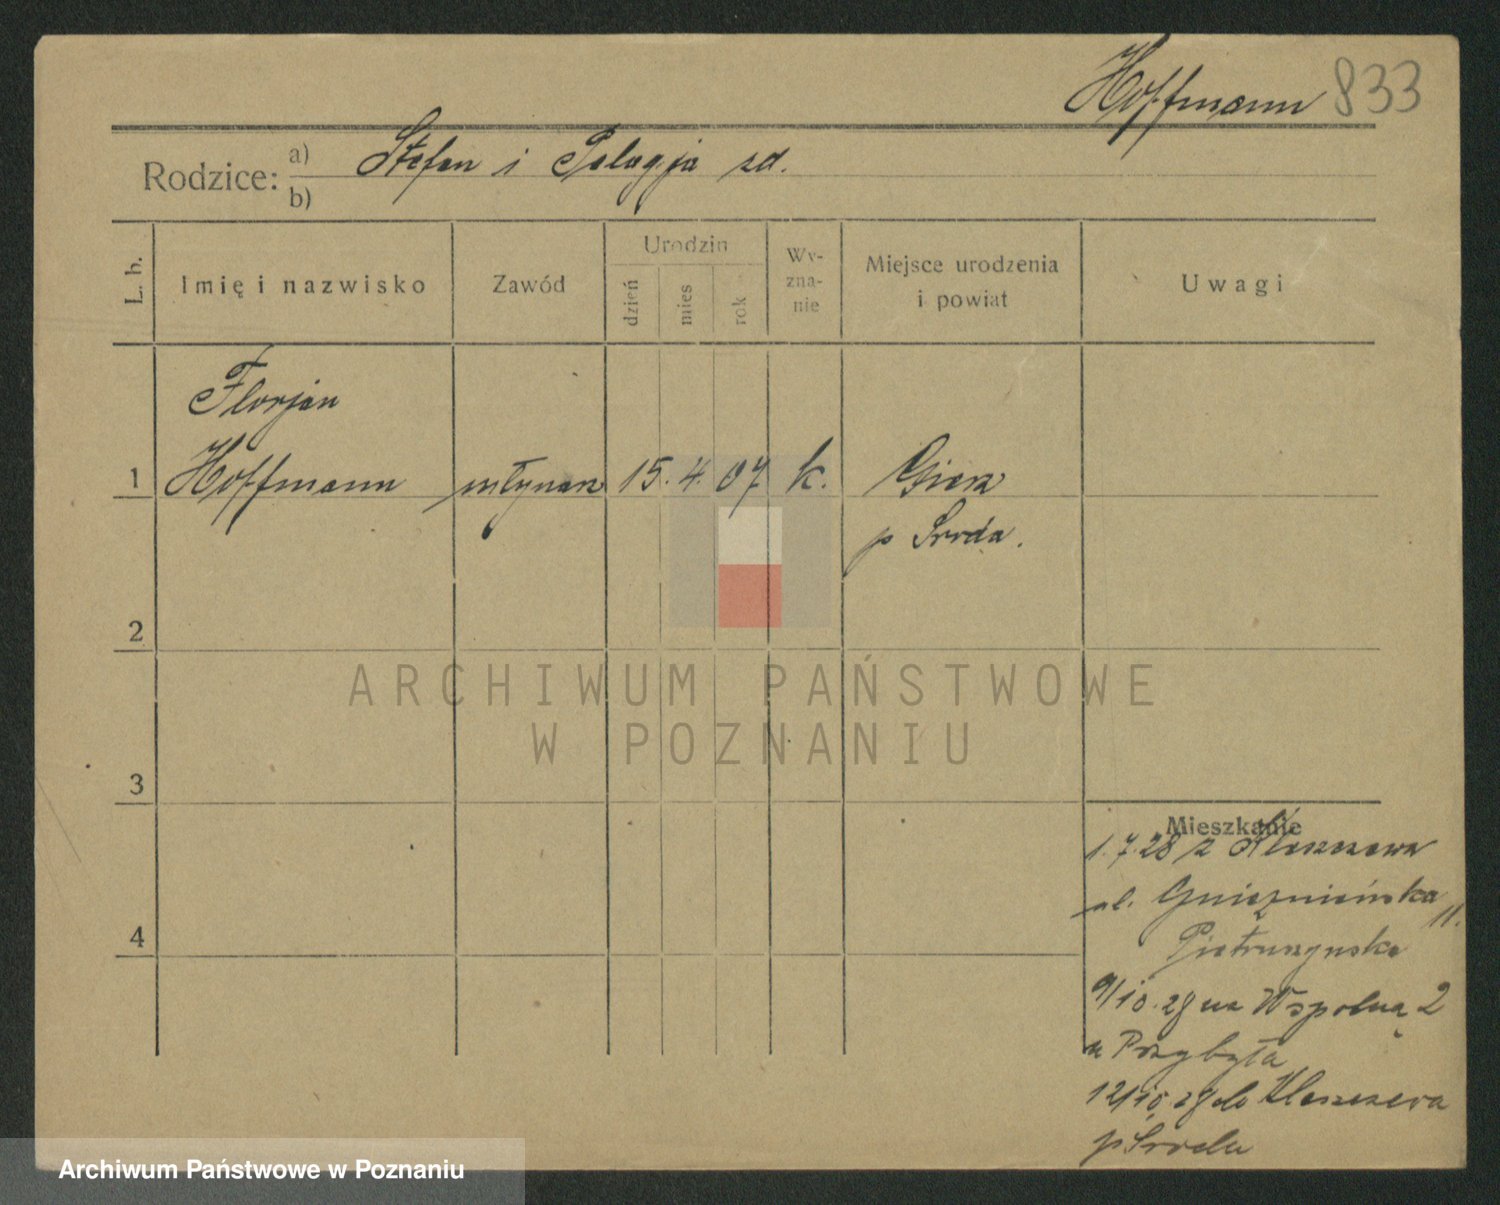 Hoffmann 833
Rodzice: a) Stefan i Pelagja zd.
b)
L. b. Imię i nazwisko Zawód Urodzin dzień mies rok Wy-zna-nie Miejsce urodzenia i powiat Uwagi
Florjan
1 Hoffmann młynarz 15. 4. 07 k. Giecz
p Środa.
2
ARCHIWUM PAŃSTWOWE
W POZNANIU
3
Mieszkanie
1.7.28 z Kleszczewa
ul. Gnieźnieńska 11.
4
Pietruszyńska
9/10.28 na Wspólną 2
u Przybyła
12/10 28 do Kleszczewa
p Środa
Archiwum Państwowe w Poznaniu